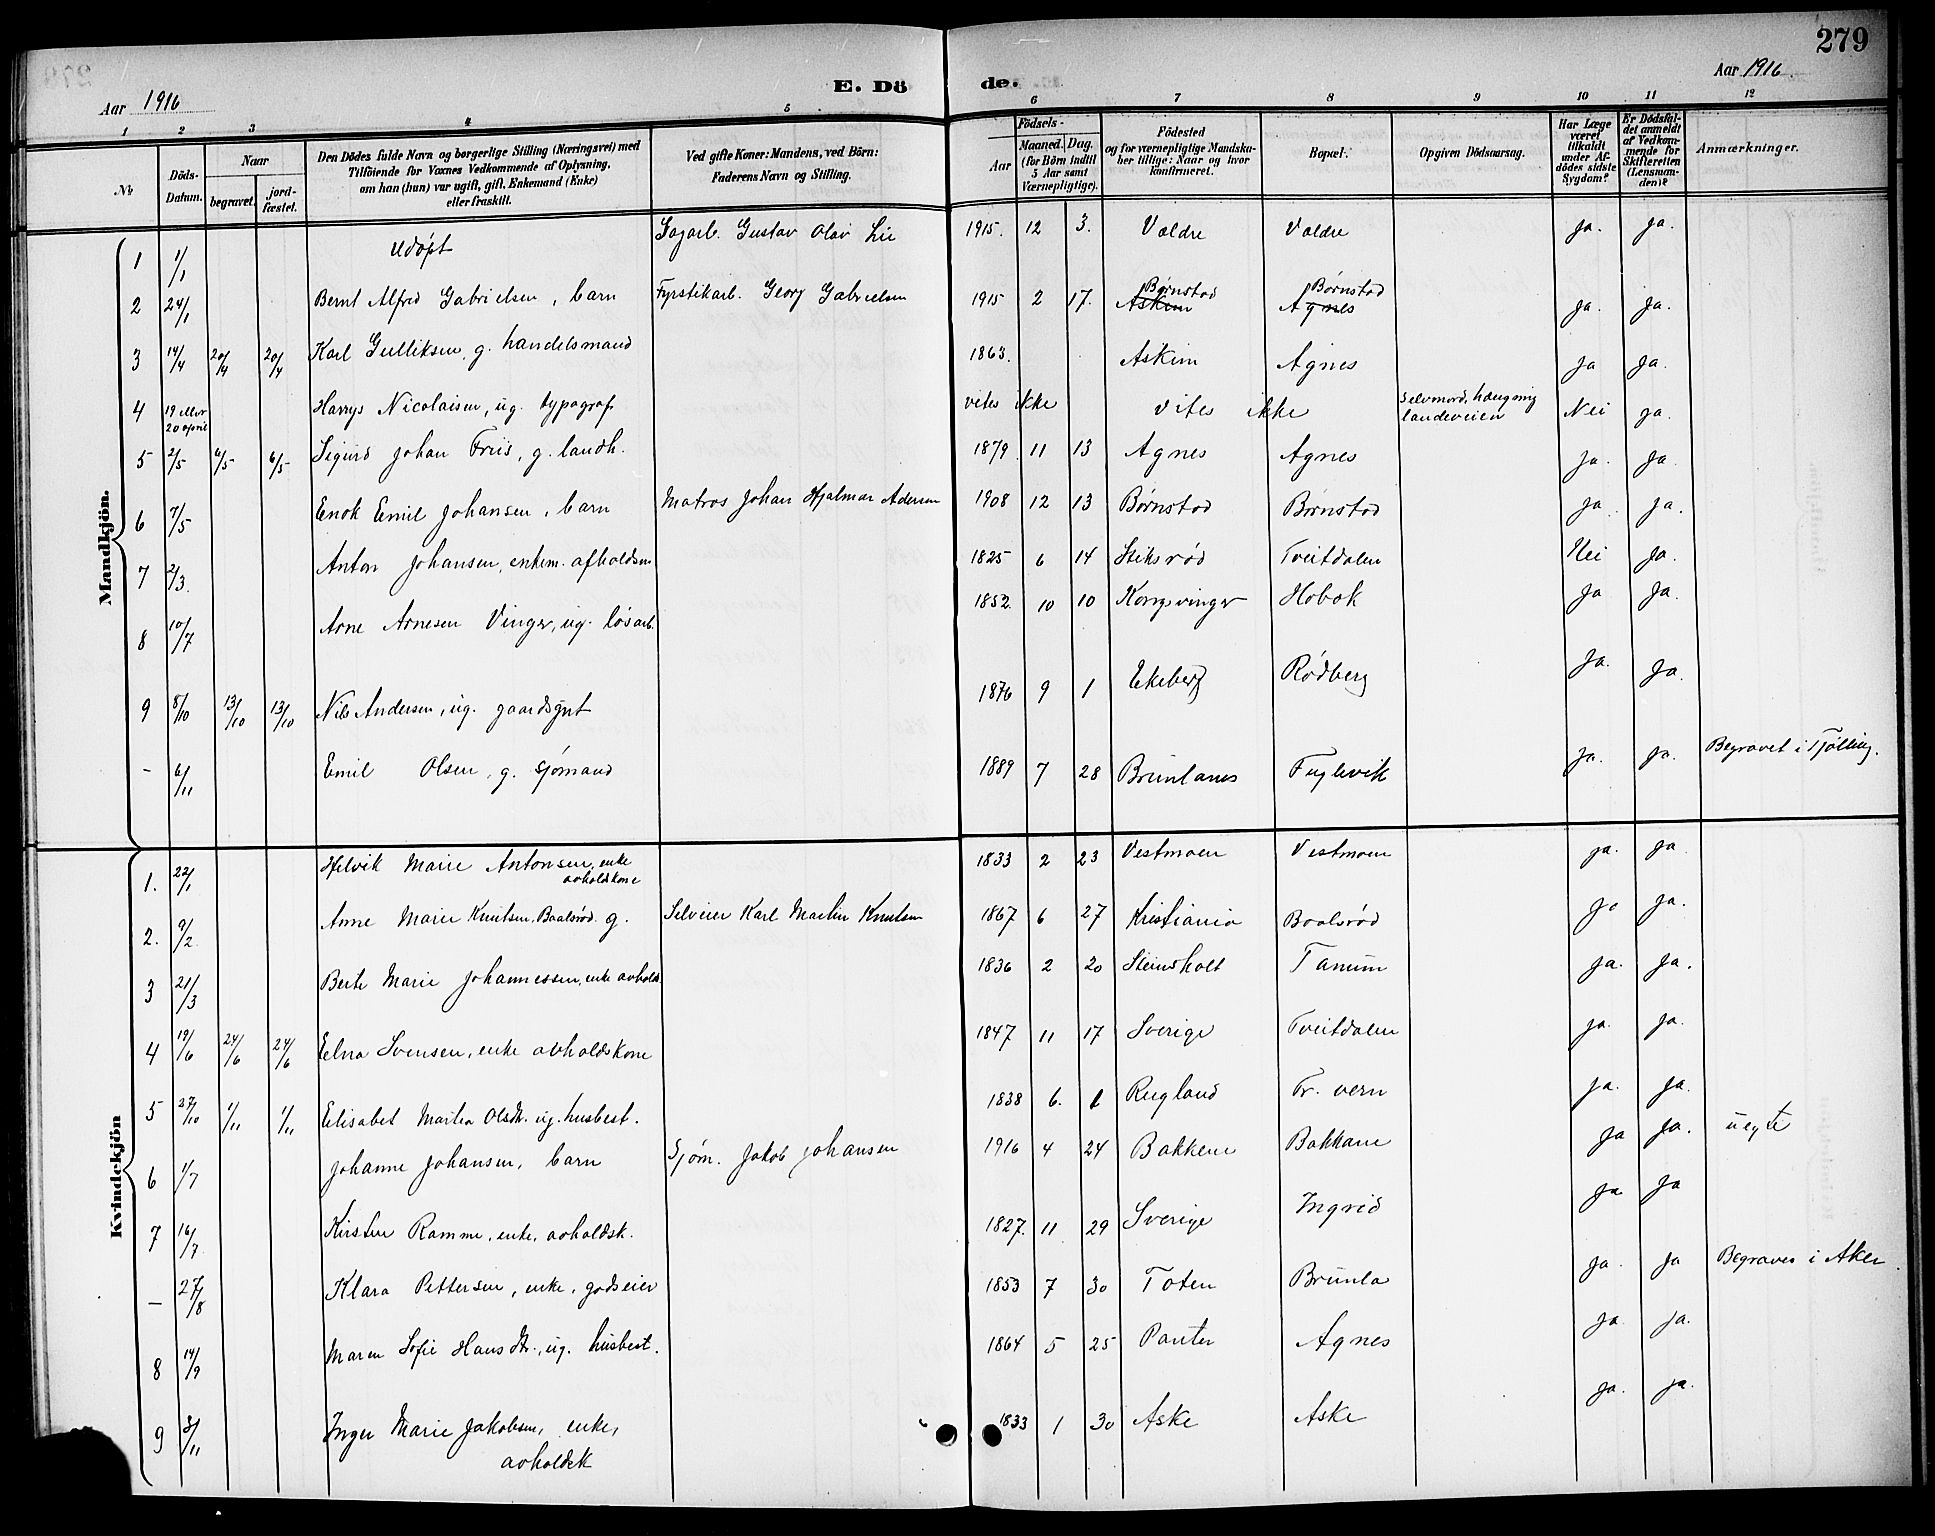 279
Aar 1916
E. Dö
de.
Aar 1916.
1 2 3 4 5 6 7 8 9 10 11 12
No
Döds-Datum.
Naar
begravet.
jord-fæstet.
Den Dödes fulde Navn og borgerlige Stilling (Næringsvei) med
Tilföiende for Voxnes Vedkommende af Oplysning,
om han (hun) var ugift, gift, Enkemand (Enke)
eller fraskilt.
Ved gifte Koner: Mandens, ved Börn:
Faderens Navn og Stilling.
Födsels-
Aar
Maaned. Dag.
(for Börn indtil
5 Aar samt
Værnepligtige).
Födested
og for værnepligtige Mandska-
ber tillige: Naar og hvor
konfirmeret.
Bopæl.
Opgiven Dödsaarsag.
Har Læge
været
tilkaldt
under Af-
dödes sidste
Sygdom?
Er Dödsfal-
det anmeldt
af Vedkom-
mende for
Skifteretten
(Lensman-
den)?
Anmærkninger.
Mandkjön.
1 1/1 Udøpt Sagarb. Gustav Olav Lie 1915. 12 3. Valdre Valdre Ja. Ja.
2 24/1 Bernt Alfred Gabrielsen, barn Fyrstikarb. Georg Gabrielsen 1915 2 17. Askim Børnstad Agnes Børnstad Ja. Ja.
3 14/4 20/4 20/4 Karl Gulliksen, g. handelsmand 1863. Askim Agnes Ja Ja.
4 19 Mar 20 april Harrys Nicolaisen, ug. typograf vites ikke vites ikke Selvmord, hængning landeveien Nei Ja.
5 2/5 6/5 6/5 Sigurd Johan Friis, g. landh. 1879 11 13 Agnes Agnes Ja. Ja.
6 7/5 Enok Emil Johansen, barn Matros Johan Hjalmar Adersen 1908 12 13 Børnstad Børnstad Ja. Ja.
7 2/3. Anton Johansen, enkem. afholdsm 1825 6 14 Stiksrød Tveitdalen Nei Ja.
8 10/7 Arne Arnesen Vinger, ug. løsarb. 1852. 10 10 Kongsvinger Hobøk Ja Ja.
9 8/10 13/10 13/10 Nils Andersen, ug. gaardsgut 1876 9 1 Ekeberg Rødberg Ja. Ja.
- 6/11 Emil Olsen, g. sjømand 1889 7 28 Brunlanes Fuglevik Ja. Ja. Begravet i Tjølling.
Kvindekjön
1. 22/1 Helvik Marie Antonsen, enke avholdskone 1833 2 23 Vestmoen Vestmoen Ja. Ja
2. 9/2. Anne Marie Knutsen, Baalsrød. g. Selveier Karl Martin Knutsen 1867 6 27 Kristiania Baalsrød Ja Ja.
3 21/3 Berte Marie Johannessen, enke avholds. 1836 2 20 Steinsholt Tanum Ja. Ja.
4 19/6 24/6 24/6 Elna Svensen, enke avholdskone 1847 11 17 Sverige Tveitdalen Ja. Ja.
5 27/10 1/11 1/11 Elisabet Martea Olsdtr. ug. husbest. 1838 6. 1 Rugland Fr. vern Ja. Ja.
6 1/7 Johanne Johansen, barn Sjøm. Jakob Johansen 1916 4 24 Bakkene Bakkane Ja Ja. uegte
7 16/7. Kirsten Ramme, enke, avholdsk. 1827. 11 29 Sverige Ingrid Ja Ja
- 27/8 Klara Pettersen, enke, godseier 1853 7 30 Toten Brunla Ja. Ja Begraves i Aker.
8 14/9 Maren Sofie Hansdtr., ug. husbest. 1864 5 25 Panter Agnes Ja. Ja.
9 3/11 Inger Marie Jakobsen, enke, avholdsk 1833 1 30 Aske Aske Ja. Ja.